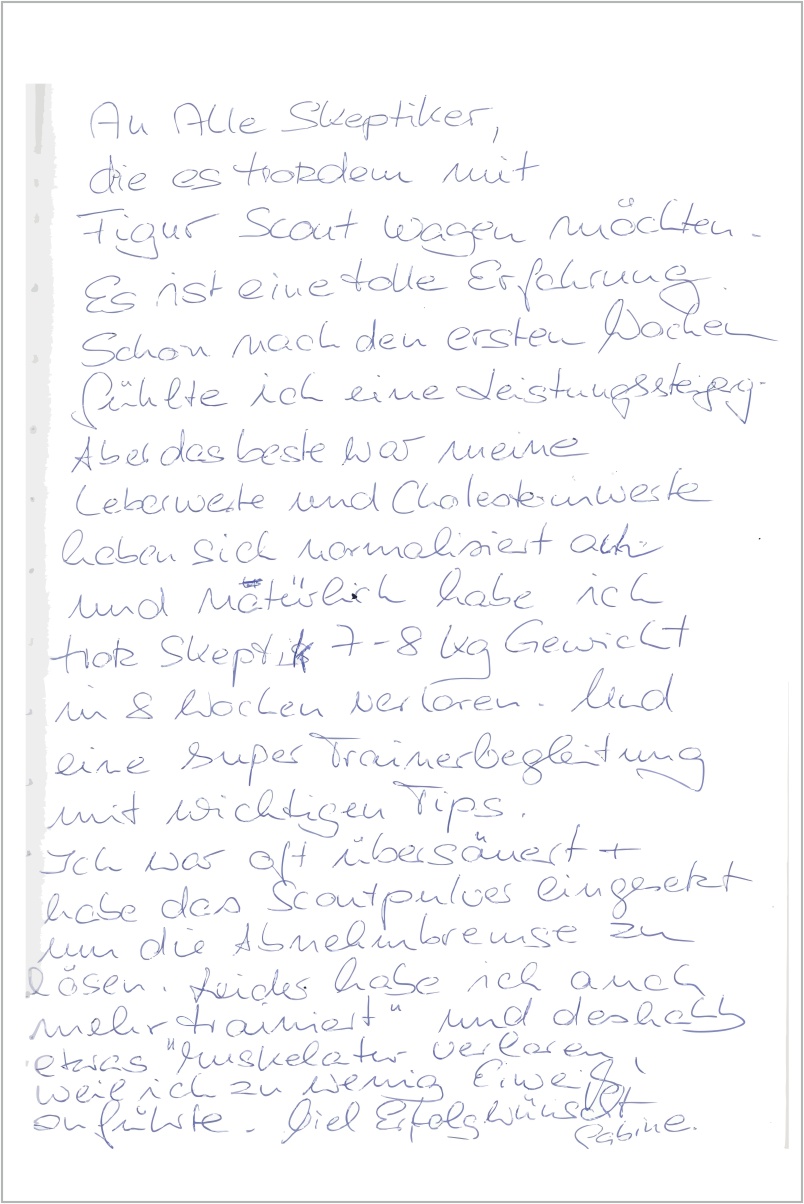 An Alle Skeptiker,
die es trotzdem mit
Figur Scout wagen möchten.
Es ist eine tolle Erfahrung.
Schon nach den ersten Wochen
fühlte ich eine Leistungssteigerg.
Aber das beste war meine
Leberwerte und Cholesterinwerte
haben sich normalisiert
und natürlich habe ich
trotz Skeptik 7-8 kg Gewicht
in 8 Wochen verloren. Und
eine super Trainerbegleitung
mit wichtigen Tips.
Ich war oft übersäuert +
habe das Scoutpulver eingesetzt
um die Abnehmbremse zu
lösen. Leider habe ich auch
mehr trainiert" und deshalb
etwas "Muskelatur verloren,
weil ich zu wenig Eiweiß
zuführte. Viel Erfolg wünscht
Sabine.